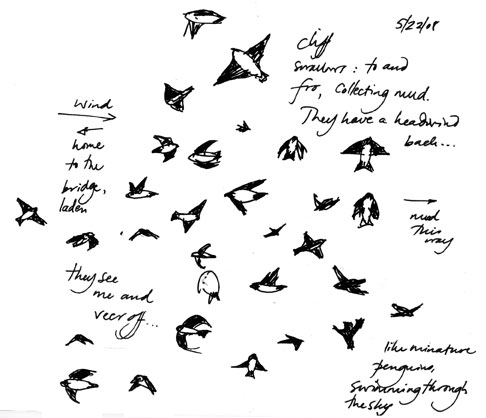 5/22/08
cliff
swallows: to and
fro, collecting mud.
They have a headwind
back...
wind
home
to the
bridge,
laden
mud
this
way
they see
me and
veer off...
like minature
penguins,
swimming through
the sky